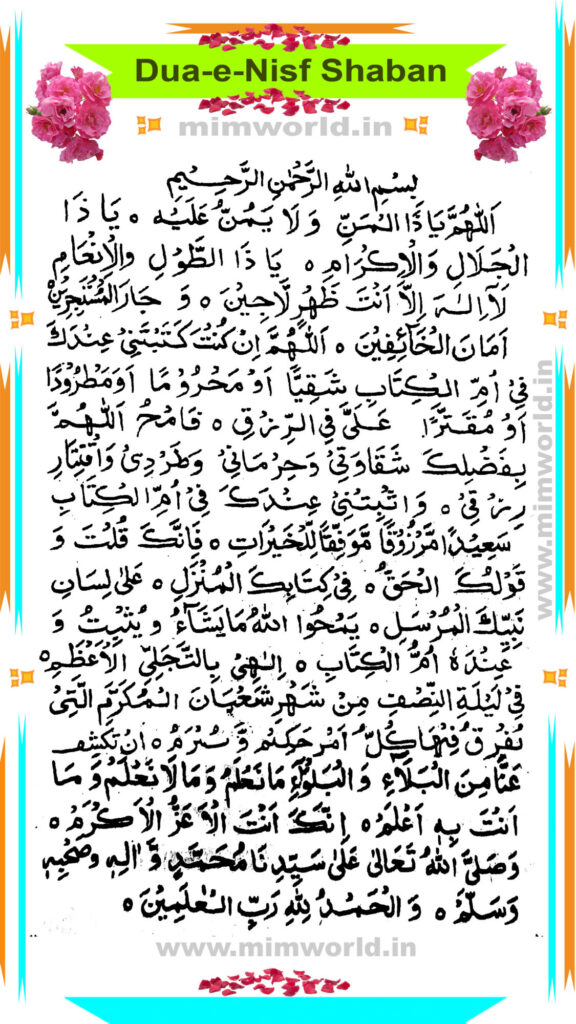 Dua-e-Nisf Shaban
mimworld.in
بِسْمِ اللهِ الرَّحْمٰنِ الرَّحِيْمِ
اَللّٰهُمَّ يَا ذَا الْمَنِّ وَلَا يَمُنُّ عَلَيْهِ ه يَا ذَا
الْجَلَالِ وَالْاِكْرَامِ ه يَا ذَا الطَّوْلِ وَالْاِنْعَامِ
لَآ اِلٰهَ اِلَّا اَنْتَ ظَهْرُ لَاجِيْنَ ه وَ جَارُ الْمُسْتَجِيْرِيْنَ
اَمَانَ الْخَآئِفِيْنَ ه اَللّٰهُمَّ اِنْ كُنْتَ كَتَبْتَنِيْ عِنْدَكَ
فِيْ اُمِّ الْكِتَابِ شَقِيًّا اَوْ مَحْرُوْمًا اَوْ مَطْرُوْدًا
اَوْ مُقْتَرًّا عَلَىَّ فِي الرِّزْقِ ه فَامْحُ اَللّٰهُمَّ
بِفَضْلِكَ شَقَاوَتِيْ وَحِرْمَانِيْ وَطَرْدِيْ وَاقْتِتَارِ
رِزْقِيْ ه وَاثْبِتْنِيْ عِنْدَكَ فِيْ اُمِّ الْكِتَابِ
سَعِيْدًا مَّرْزُوْقًا مُّوَفَّقًا لِّلْخَيْرَاتِ ه فَاِنَّكَ قُلْتَ وَ
قَوْلُكَ الْحَقُّ ه فِيْ كِتَابِكَ الْمُنْزَلِ ه عَلٰى لِسَانِ
نَبِيِّكَ الْمُرْسَلِ ه يَمْحُوا اللهُ مَا يَشَآءُ وَيُثْبِتُ وَ
عِنْدَهٗ اُمُّ الْكِتَابِ ه اِلٰهِيْ بِالتَّجَلِّيِّ الْاَعْظَمِ ه
فِيْ لَيْلَةِ النِّصْفِ مِنْ شَهْرِ شَعْبَانَ الْمُكَرَّمِ الَّتِيْ
يُفْرَقُ فِيْهَا كُلُّ اَمْرٍ حَكِيْمٍ وَّ يُبْرَمُ ه اَنْ تَكْشِفَ
عَنَّا مِنَ الْبَلَآءِ وَالْبَلْوَآءِ مَا نَعْلَمُ وَمَا لَا نَعْلَمُ وَ مَا
اَنْتَ بِهٖ اَعْلَمُ ه اِنَّكَ اَنْتَ الْاَعَزُّ الْاَكْرَمُ ه
وَصَلَّى اللهُ تَعَالٰى عَلٰى سَيِّدِنَا مُحَمَّدٍ وَّ اٰلِهٖ وَصَحْبِهٖ
وَسَلَّمَ ه وَ الْحَمْدُ لِلّٰهِ رَبِّ الْعٰلَمِيْنَ ه
www.mimworld.in
www.mimworld.in